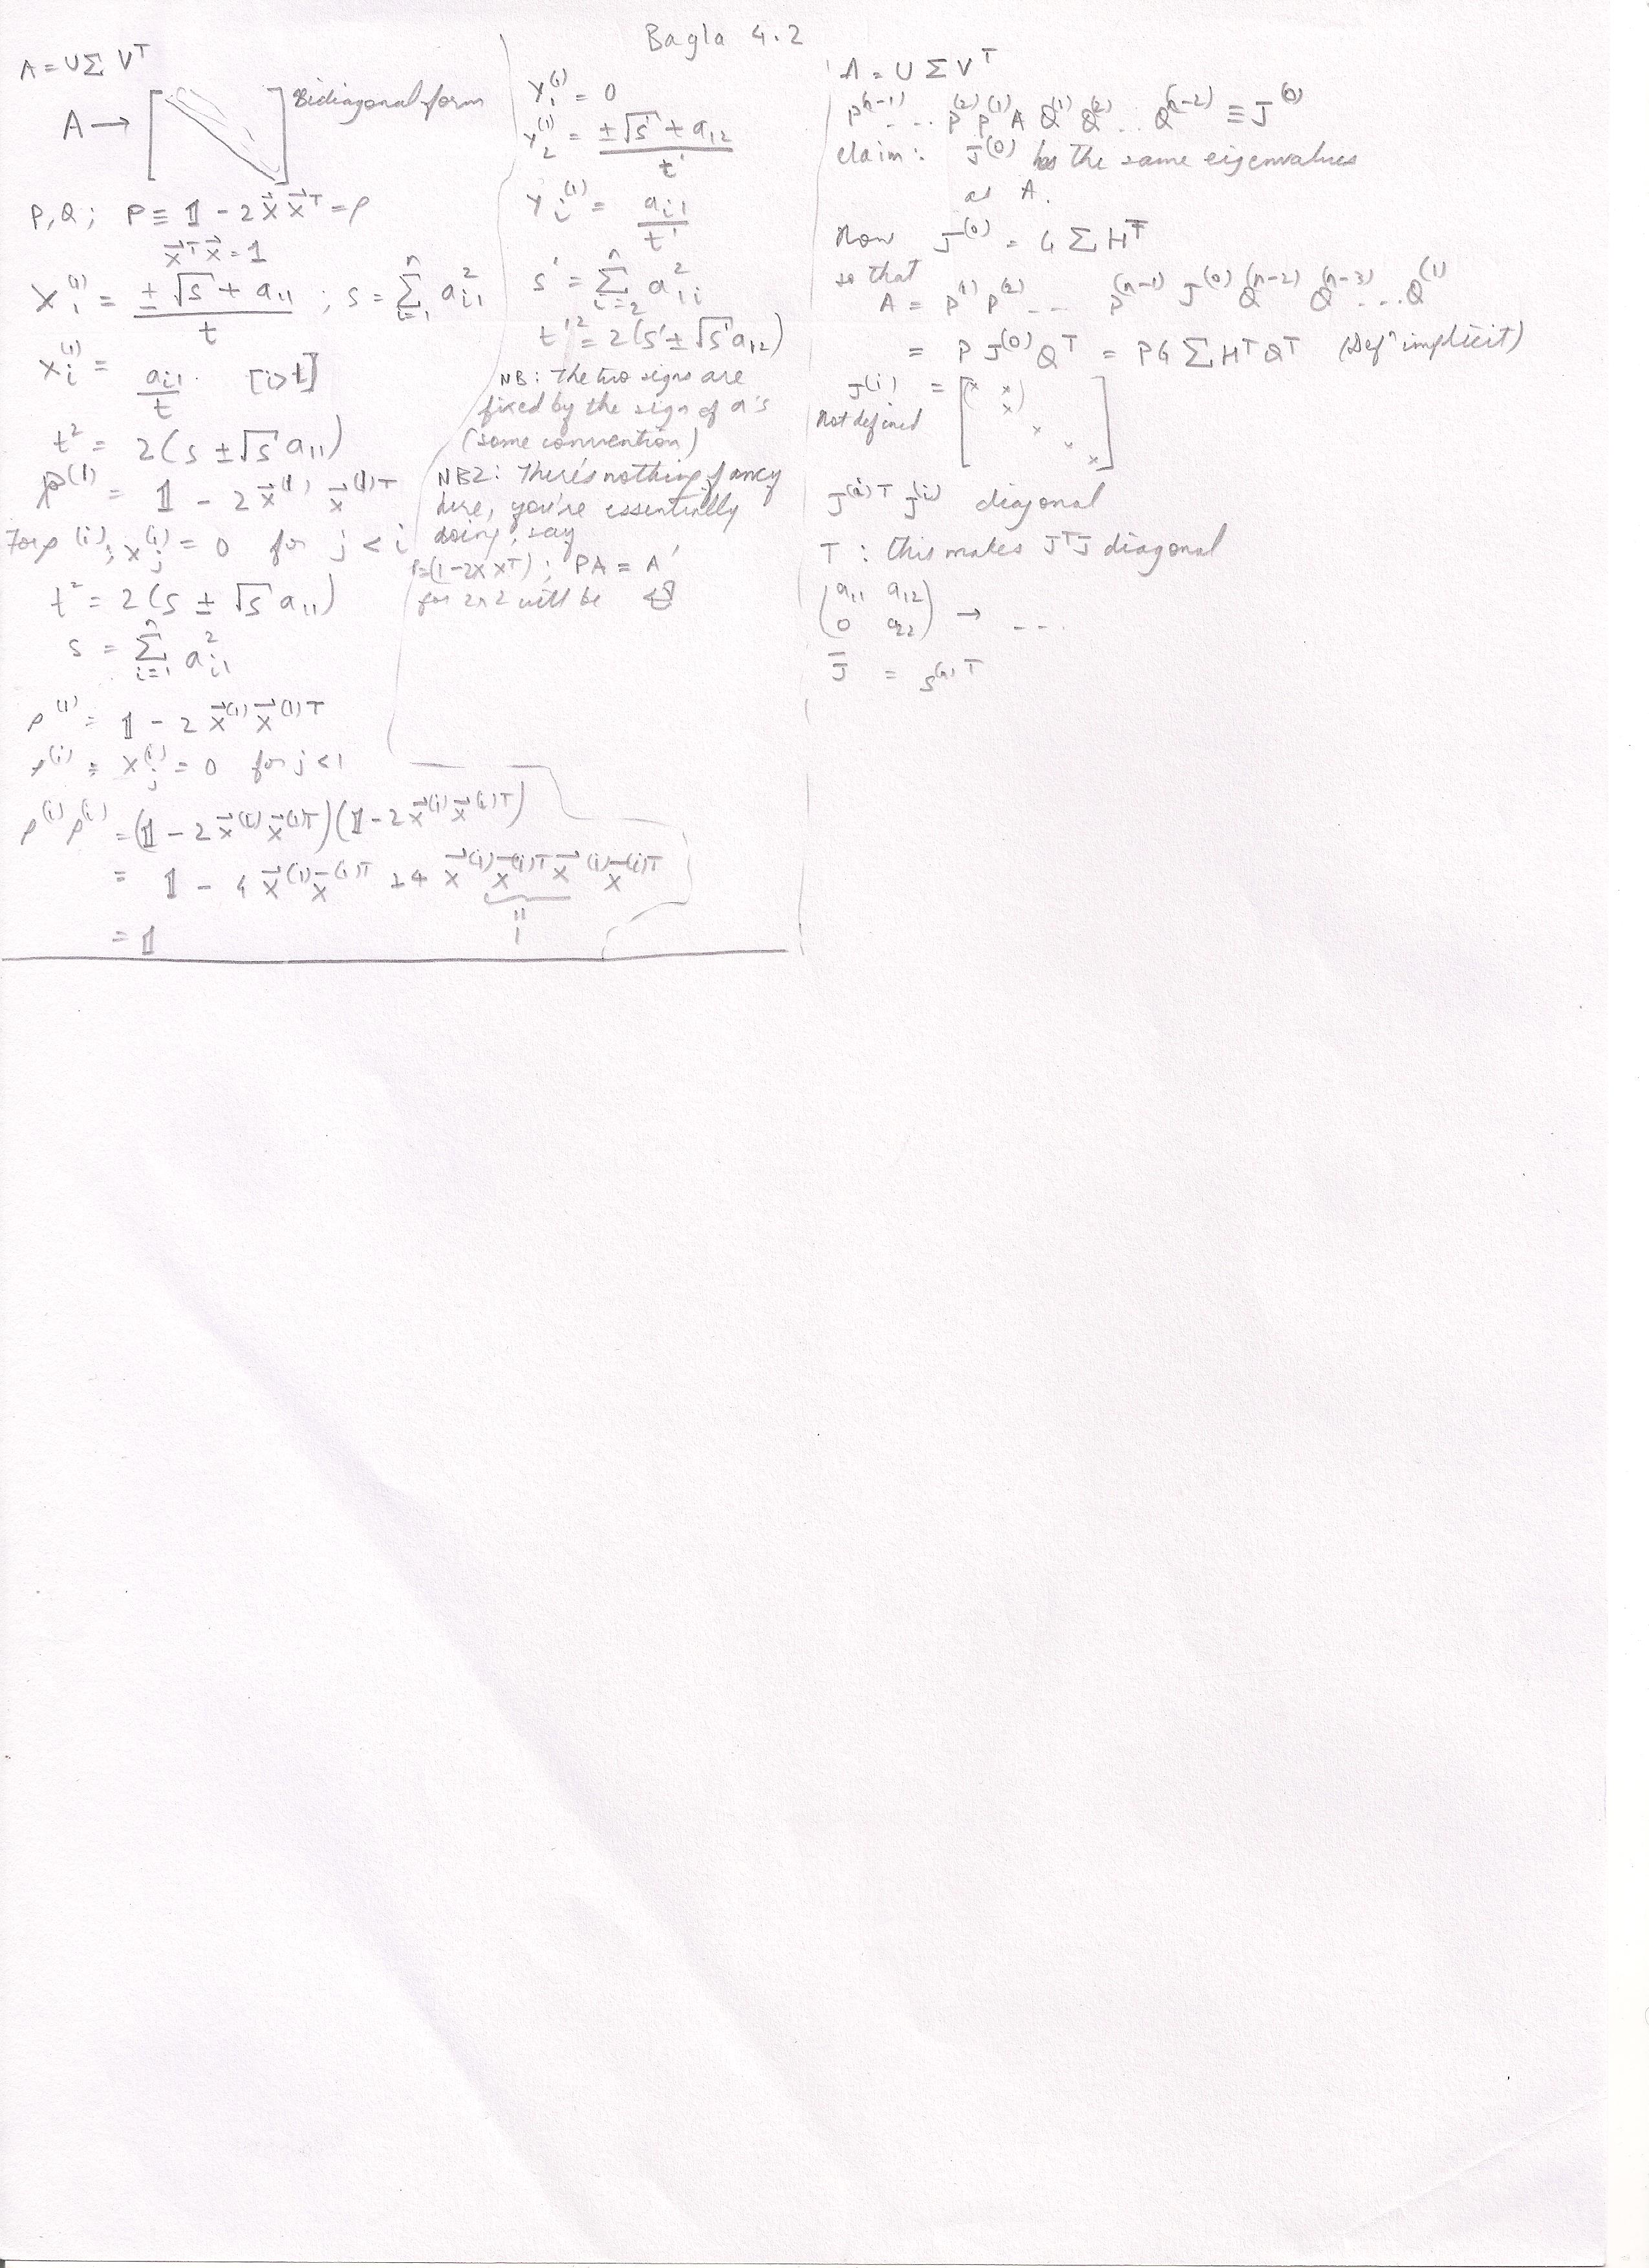 Bagla 4.2
A = UΣ Vᵀ
A → [ ] Bidiagonal form
P, Q ; P ≡ 𝟙 - 2 x⃗ x⃗ᵀ = P
x⃗ᵀ x⃗ = 1
x₁⁽¹⁾ = (±√s + a₁₁)/t ; s = Σᵢ₌₁ⁿ aᵢ₁²
xᵢ⁽¹⁾ = aᵢ₁/t [i>1]
t² = 2(s ± √s a₁₁)
P⁽¹⁾ = 𝟙 - 2 x⃗⁽¹⁾ x⃗⁽¹⁾ᵀ
For P⁽ⁱ⁾ : xⱼ⁽ⁱ⁾ = 0 for j < i
t² = 2(s ± √s a₁₁)
s = Σᵢ₌₁ⁿ aᵢ₁²
P⁽¹⁾ = 𝟙 - 2 x⃗⁽¹⁾ x⃗⁽¹⁾ᵀ
P⁽ⁱ⁾ = xⱼ⁽ⁱ⁾ = 0 for j < 1
P⁽ⁱ⁾ P⁽ⁱ⁾ = (𝟙 - 2 x⃗⁽ⁱ⁾ x⃗⁽ⁱ⁾ᵀ)(𝟙 - 2 x⃗⁽ⁱ⁾ x⃗⁽ⁱ⁾ᵀ)
= 𝟙 - 4 x⃗⁽ⁱ⁾ x⃗⁽ⁱ⁾ᵀ + 4 x⃗⁽ⁱ⁾ x⃗⁽ⁱ⁾ᵀ x⃗⁽ⁱ⁾ x⃗⁽ⁱ⁾ᵀ
= 𝟙
y₁⁽¹⁾ = 0
y₂⁽¹⁾ = (±√s' + a₁₂)/t'
yᵢ⁽¹⁾ = aᵢ₁/t'
s' = Σᵢ₌₂ⁿ a₁ᵢ²
t'² = 2(s' ± √s' a₁₂)
NB: The two signs are
fixed by the sign of a's
(same convention)
NB2: There's nothing fancy
here, you're essentially
doing, say
P=(1-2XXᵀ) ; PA = A'
for 2x2 will be
A = U Σ Vᵀ
P⁽ⁿ⁻¹⁾ ... P⁽²⁾ P⁽¹⁾ A Q⁽¹⁾ Q⁽²⁾ ... Q⁽ⁿ⁻²⁾ ≡ J⁽⁰⁾
claim: J⁽⁰⁾ has the same eigenvalues
as A.
Now J⁽⁰⁾ = G Σ Hᵀ
so that
A = P⁽¹⁾ P⁽²⁾ ... P⁽ⁿ⁻¹⁾ J⁽⁰⁾ Q⁽ⁿ⁻²⁾ Q⁽ⁿ⁻³⁾ ... Q⁽¹⁾
= P J⁽⁰⁾ Qᵀ = PG Σ Hᵀ Qᵀ (Defⁿ implicit)
J⁽ⁱ⁾ = [x x x x x x]
Not defined
J⁽ⁱ⁾ᵀ J⁽ⁱ⁾ diagonal
T : this makes JᵀJ diagonal
(a₁₁ a₁₂
0 a₂₂) → ---
J̅ = S⁽ⁿ⁾ᵀ